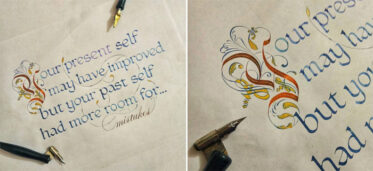 Your present self
may have improved
but your past self
had more room for...
mistakes
your present
may have
but your
had m